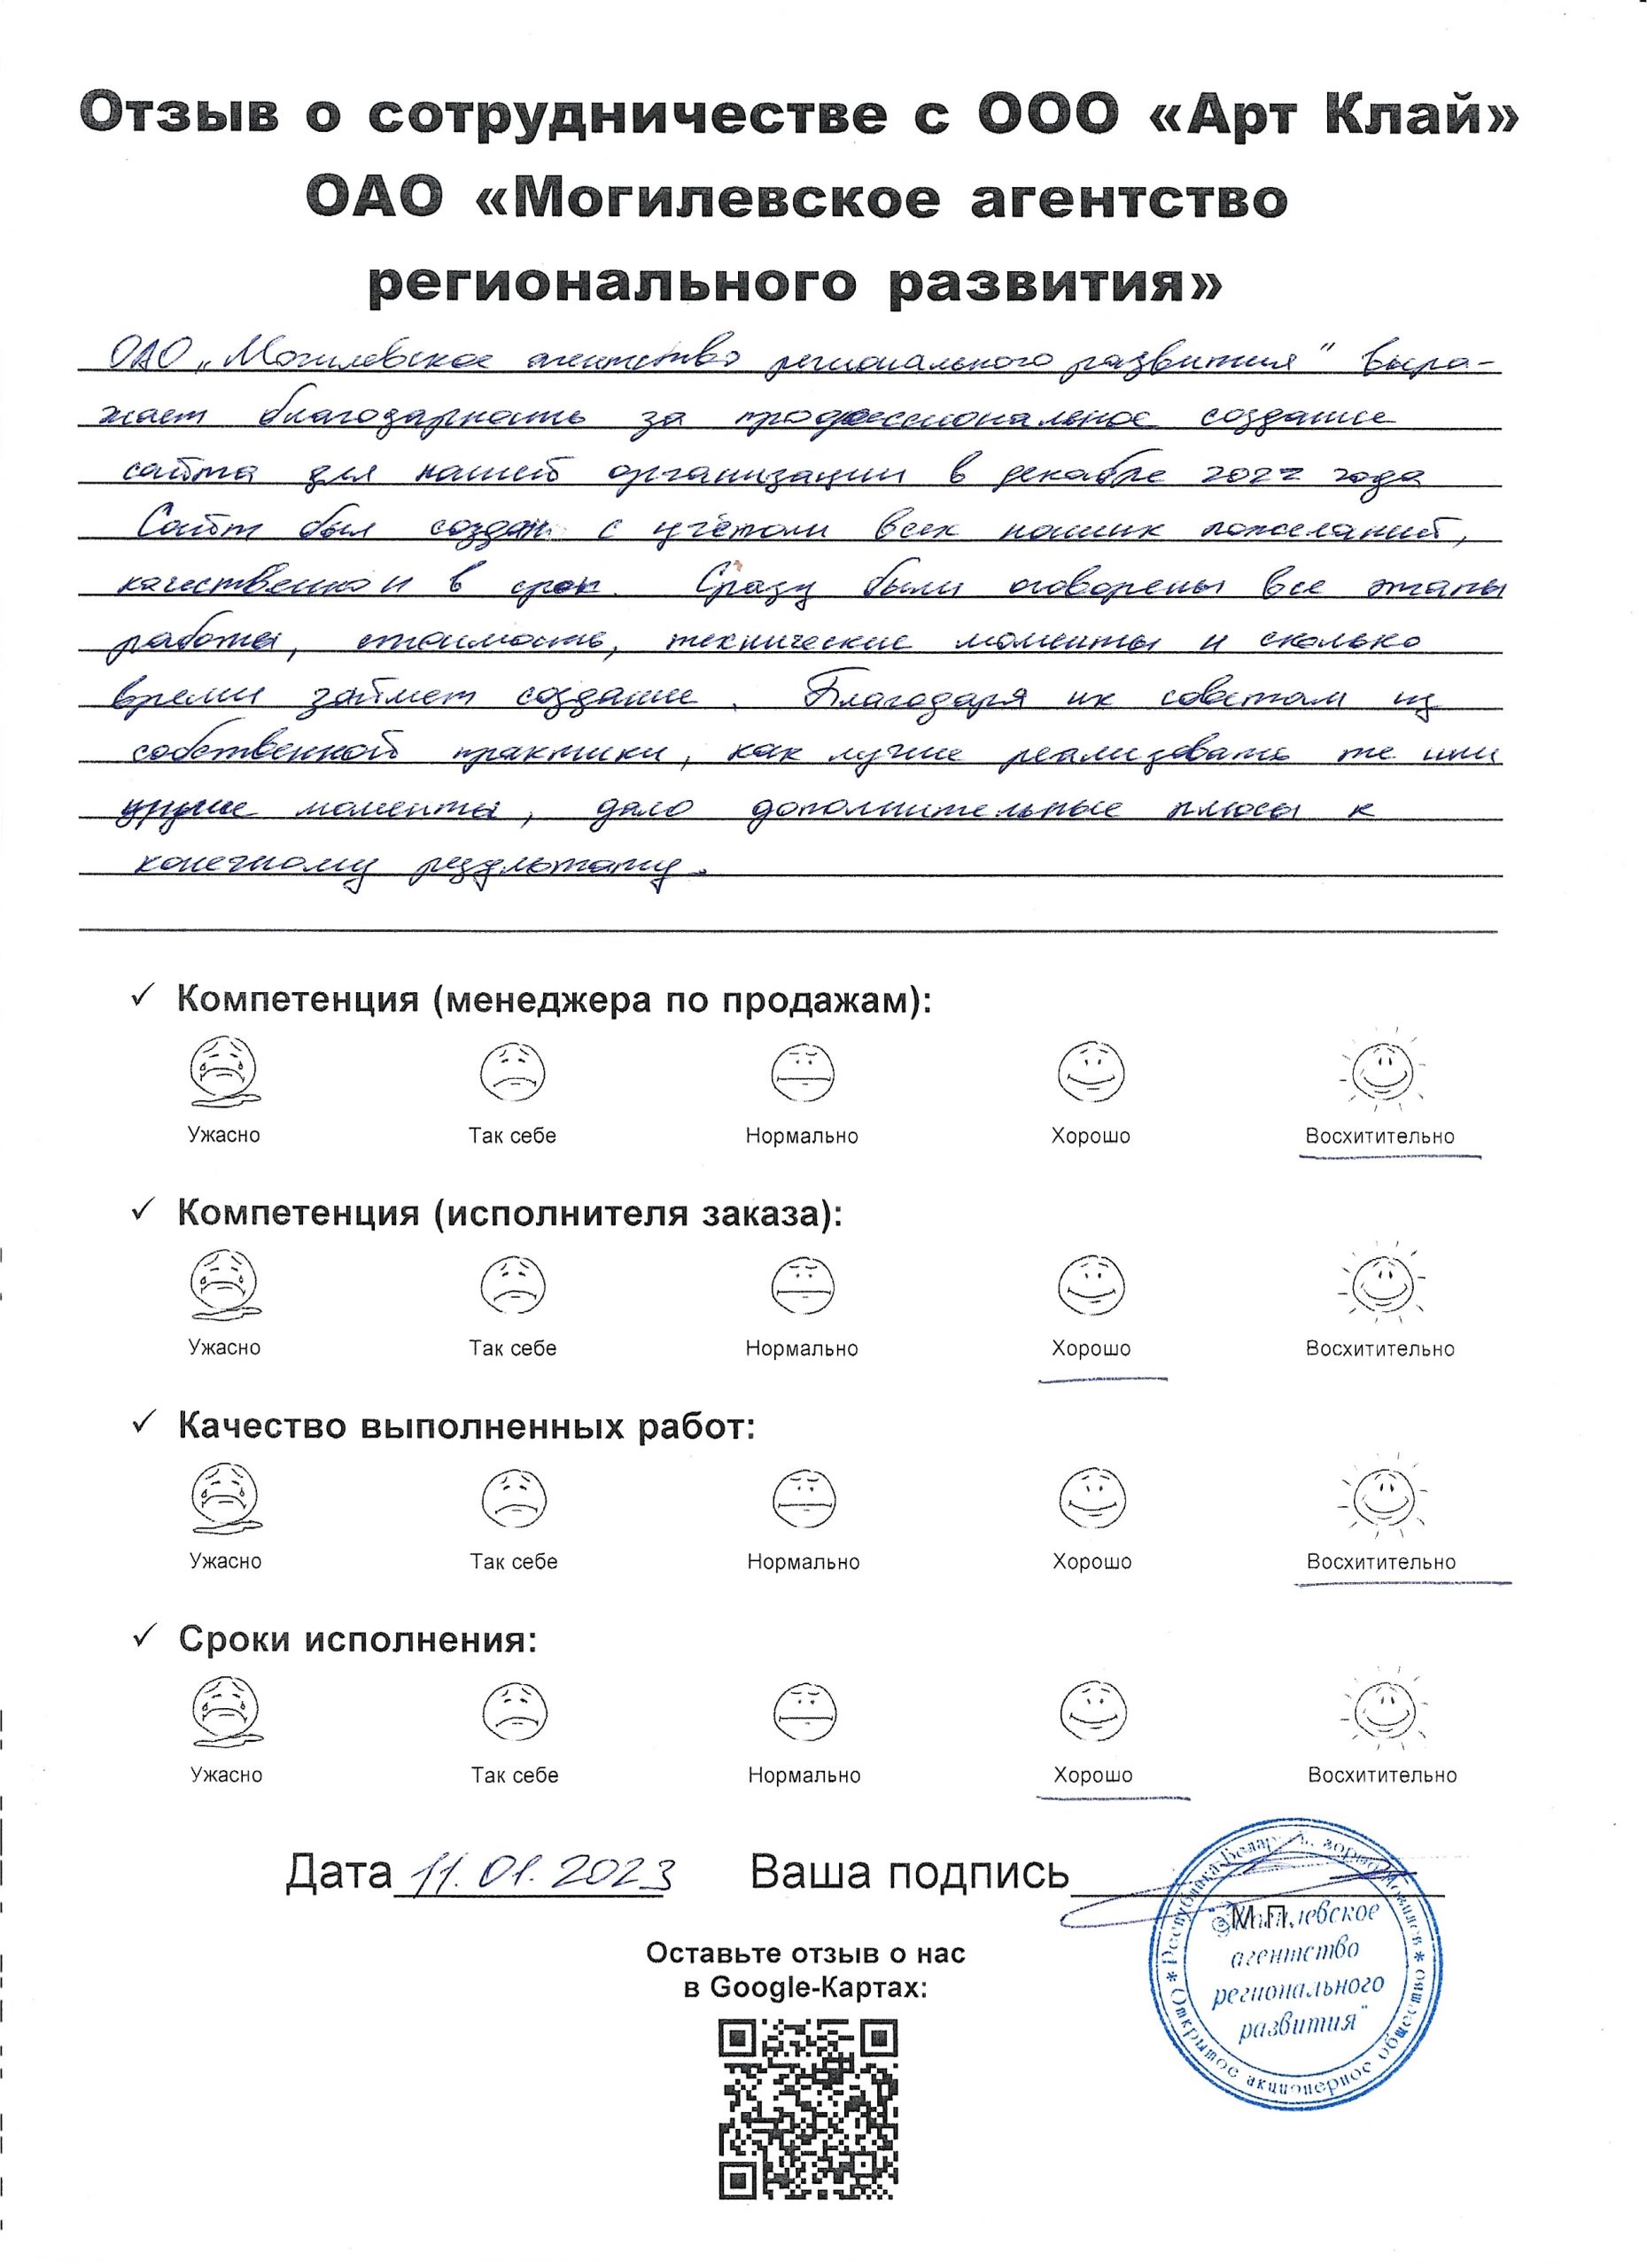 Отзыв о сотрудничестве с ООО «Арт Клай»
ОАО «Могилевское агентство
регионального развития»
ОАО „Могилевское агентство регионального развития" выра-
жает благодарность за профессиональное создание
сайта для нашей организации в декабре 2022 года
Сайт был создан с учётом всех наших пожеланий,
качественно и в срок. Сразу были оговорены все этапы
работы, стоимость, технические моменты и сколько
время займет создание. Благодаря их советам из
собственной практики, как лучше реализовать те или
другие моменты, дало дополнительные плюсы к
конечному результату.
✓ Компетенция (менеджера по продажам):
Ужасно Так себе Нормально Хорошо Восхитительно
✓ Компетенция (исполнителя заказа):
Ужасно Так себе Нормально Хорошо Восхитительно
✓ Качество выполненных работ:
Ужасно Так себе Нормально Хорошо Восхитительно
✓ Сроки исполнения:
Ужасно Так себе Нормально Хорошо Восхитительно
Дата 11.01.2023 Ваша подпись
М.П.
Республика Беларусь, город Могилев * Открытое акционерное общество *
"Могилевское
агентство
регионального
развития"
Оставьте отзыв о нас
в Google-Картах: